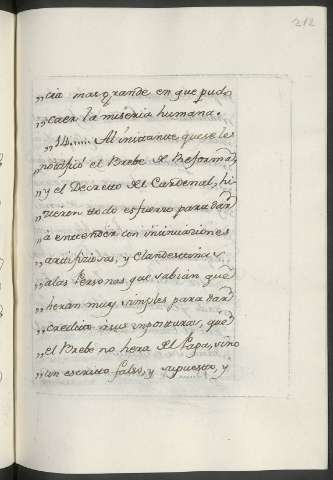 212
„cia mas grande en que pudo
„caer la miseria humana.
„14..... Al instante que se les
notifico el Brebe de Reforma,
„y el Decreto del Cardenal, hi
„cieron todo esfuerzo para dar
„à entender con incinuaciones
„artifiziosas, y clandestinas
„alas Personas que sabian que
„heran muy simples para dar
„credito a sus inposturas, que
„el Brebe no hera del Papa, sino
„un escrito falso, y supuesto, y